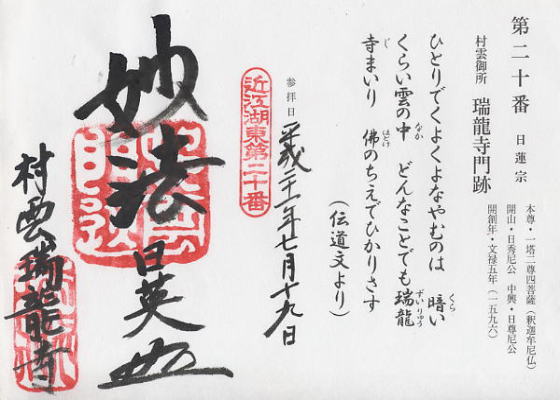 第二十番 日蓮宗
村雲御所 瑞龍寺門跡
本尊・一塔二尊四菩薩（釈迦牟尼仏）
開山・日秀尼公 中興・日尊尼公
開創年・文禄五年（一五九六）
ひとりでくよくよなやむのは 暗い
くらい雲の中 どんなことでも瑞龍
寺まいり 佛のちえでひかりさす
（伝道文より）
参拝日 平成二十一年七月十九日
近江湖東第二十番
妙法 日英
村雲瑞龍寺